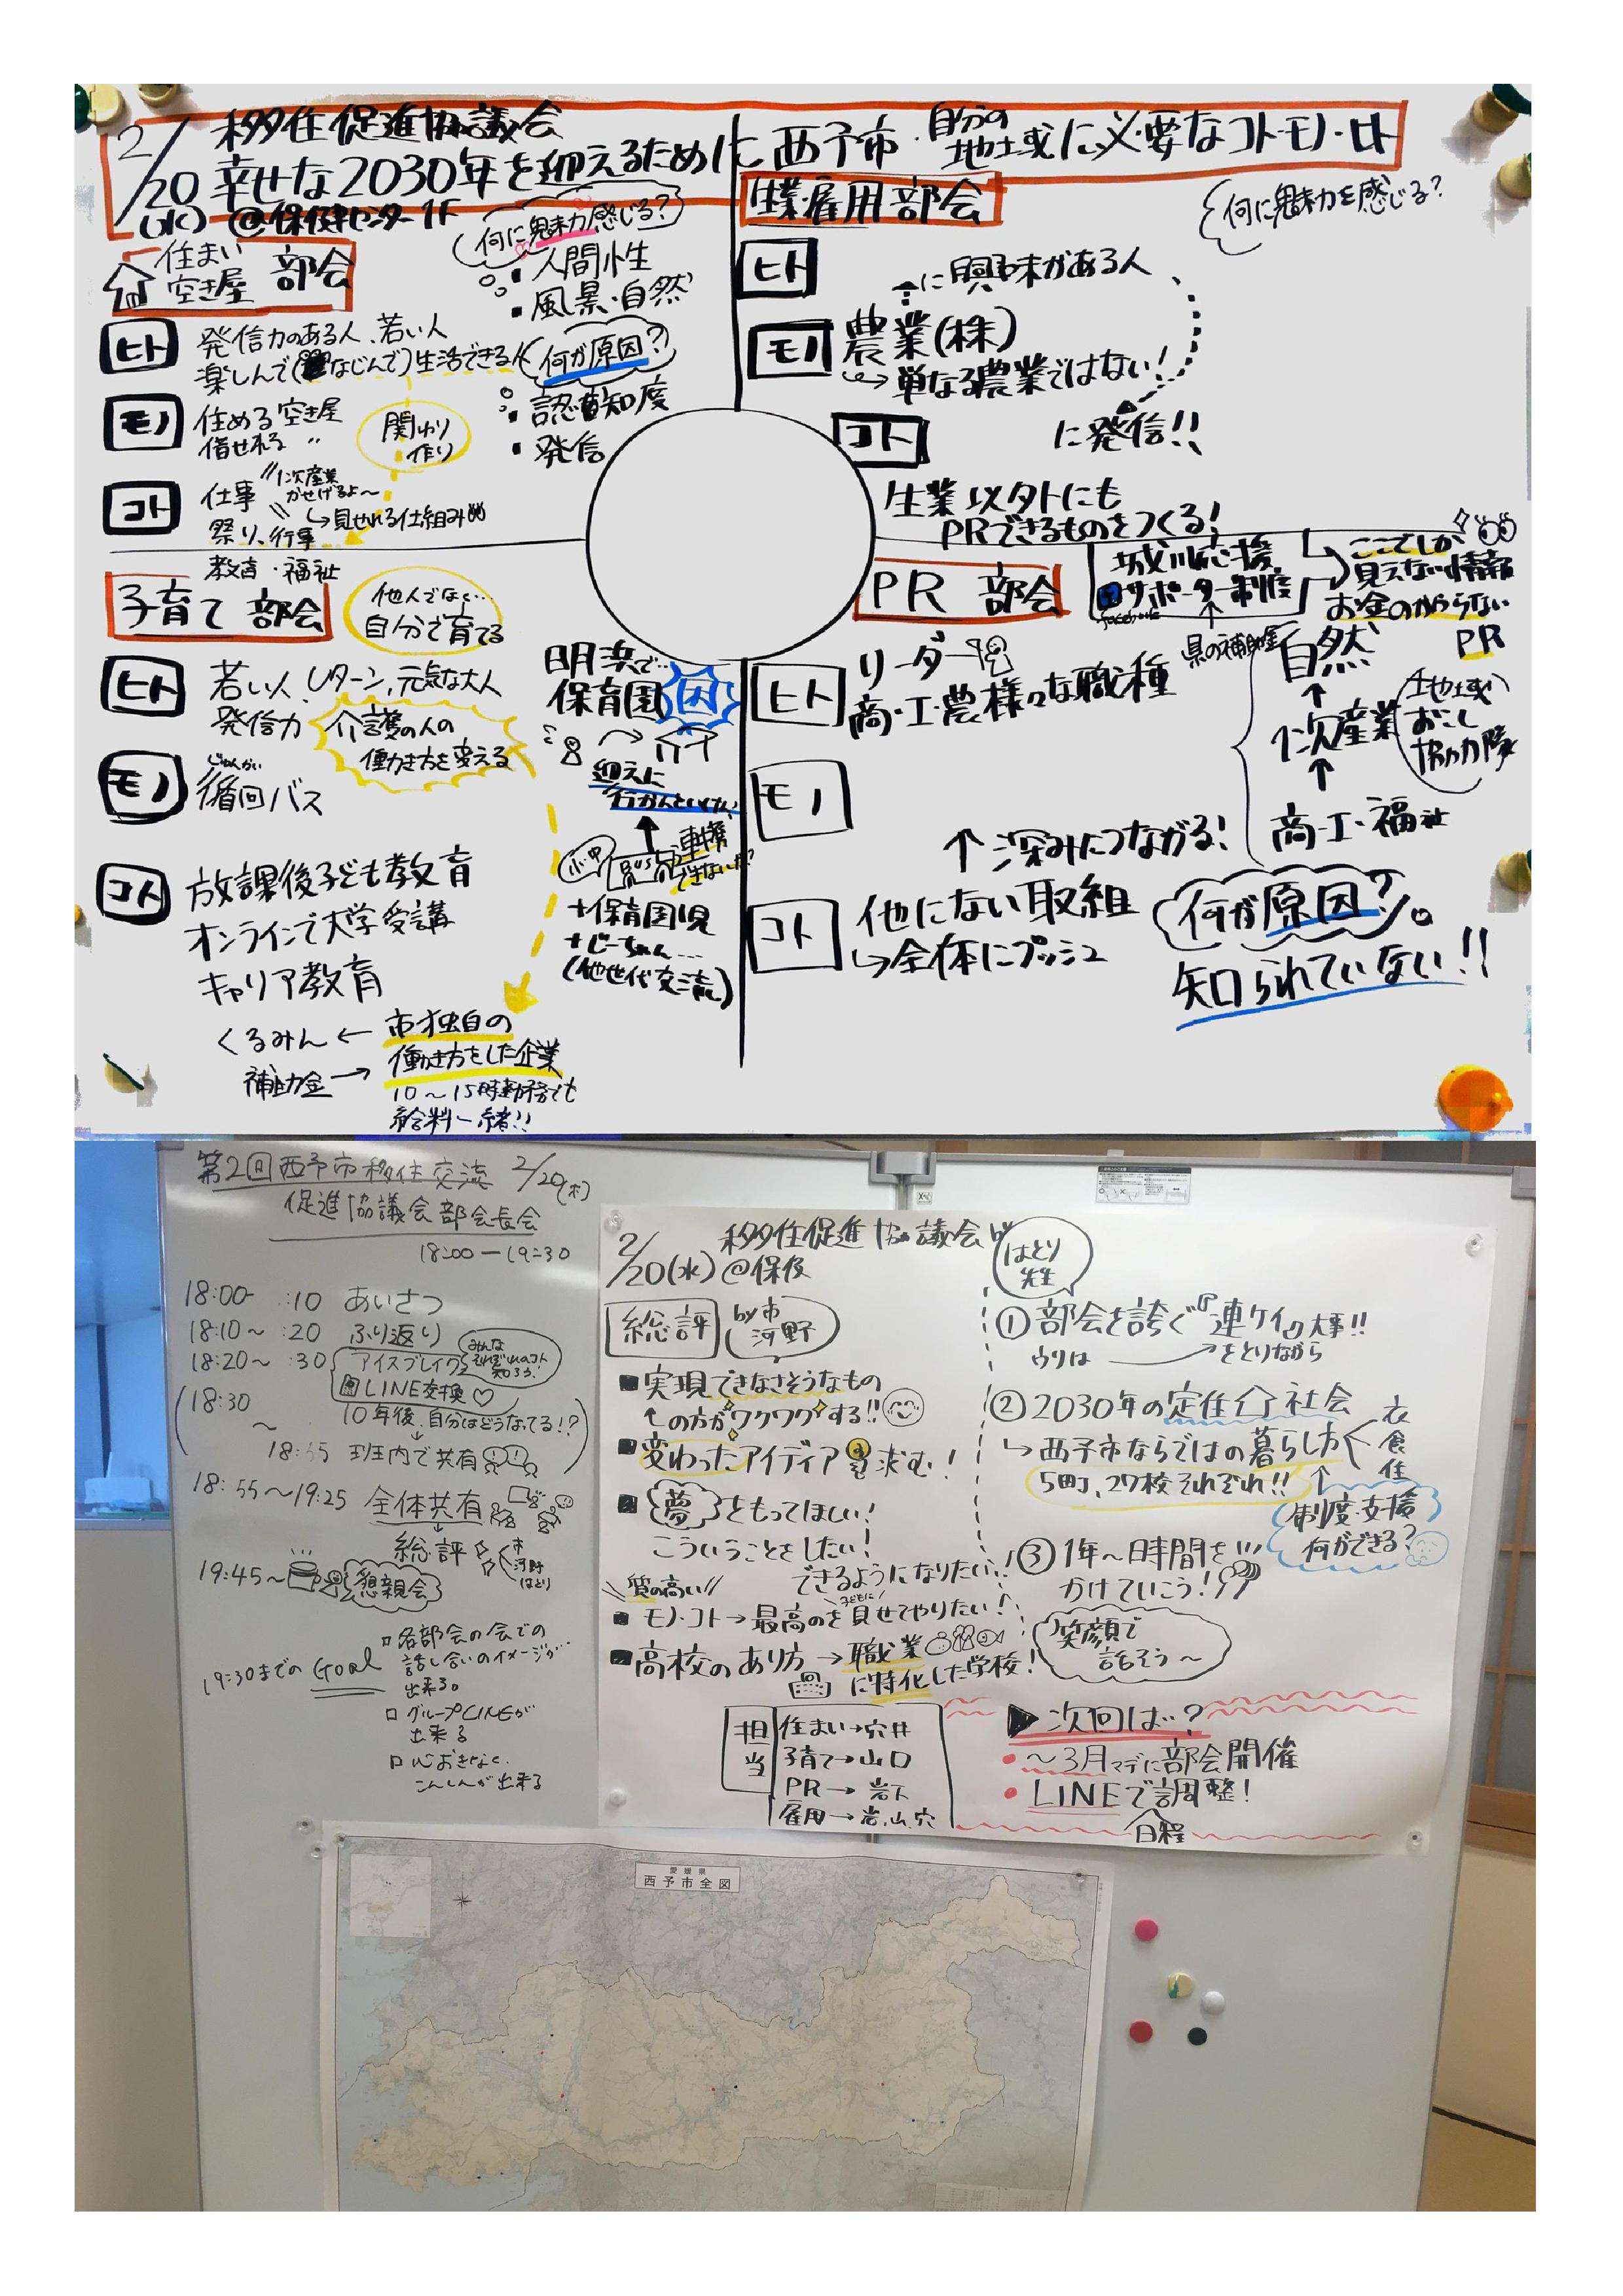 2/20(水) 移住促進協議会
幸せな2030年を迎えるために 西予市・自分の地域に必要なコト・モノ・ヒト
@保健センター1F
住まい
空き屋 部会
何に魅力感じる?
・人間性
・風景・自然
ヒト 発信力のある人、若い人
楽しんで(なじんで)生活できる人
何が原因?
・認知度
・発信
モノ 住める空き屋
借せれる 〃
関わり
作り
コト 仕事
1次産業
かせげるよ〜
→見せれる仕組み
祭り、行事
教育・福祉
子育て 部会
他人でなく…
自分で育てる
ヒト 若い人、Uターン、元気な大人
発信力
介護の人の
働き方を変える
モノ 循回バス
じゅんかい
コト 放課後子ども教育
オンラインで大学受講
キャリア教育
くるみん ← 市独自の
補助金 → 働き方をした企業
10〜15時勤務でも
給料一緒!!
明浜で…
保育園 因
迎えに
行かんといけん
小中
BUS
連携
できないか?
+保育園児
+じーちゃん…
(他世代交流)
生業・雇用部会
何に魅力を感じる?
ヒト
↑に興味がある人
モノ 農業(株)
→単なる農業ではない!
コト に発信!!
生業以外にも
PRできるものをつくる!
PR 部会
城川応援
サポーター制度
facebook
県の補助金
ここでしか
見えない情報
お金のかからない
PR
ヒト リーダー
商・工・農様々な職種
自然
↑
1次産業
↑
商・工・福祉
地域
おこし
協力隊
モノ
↑深みにつながる!
コト 他にない取組
→全体にプッシュ
何が原因?
知られていない!!
第2回西予市移住交流 2/20(木)
促進協議会部会長会
18:00ー19:30
18:00〜 :10 あいさつ
18:10〜 :20 ふり返り
18:20〜 :30 アイスブレイク
みんな
それぞれのコト
知ろう!
LINE交換♡
18:30
〜
10年後、自分はどうなってる!?
班内で共有
18:55〜19:25 全体共有
↓
総評
市
河野
はとり
19:45〜 懇親会
19:30までのGoal
□各部会の会での
話し合いのイメージが
出来る。
□グループLINEが
出来る
□心おきなく
こんしんが出来る
2/20(水) 移住促進協議会
@保健
総評 by市 河野
■実現できなさそうなもの
↑の方がワクワクする!!
■変わったアイディア求む!
■夢をもってほしい!
こういうことをしたい!
できるようになりたい!
質の高い
■モノ・コト→最高のを見せてやりたい!
子どもに
■高校のあり方→職業
に特化した学校!
担当
住まい→穴井
子育て→山口
PR→岩下
雇用→岩,山,穴
はとり
先生
①部会を誇ぐ『連ケイ』大事!!
ウリは をとりながら
②2030年の定住社会
→西予市ならではの暮らし方
衣
食
住
5町、27校それぞれ!!
制度・支援
何ができる?
③1年〜時間を
かけていこう!
笑顔で
話そう〜
▶次回は…?
・〜3月マデに部会開催
・LINEで調整!
日程
愛媛県
西予市全図